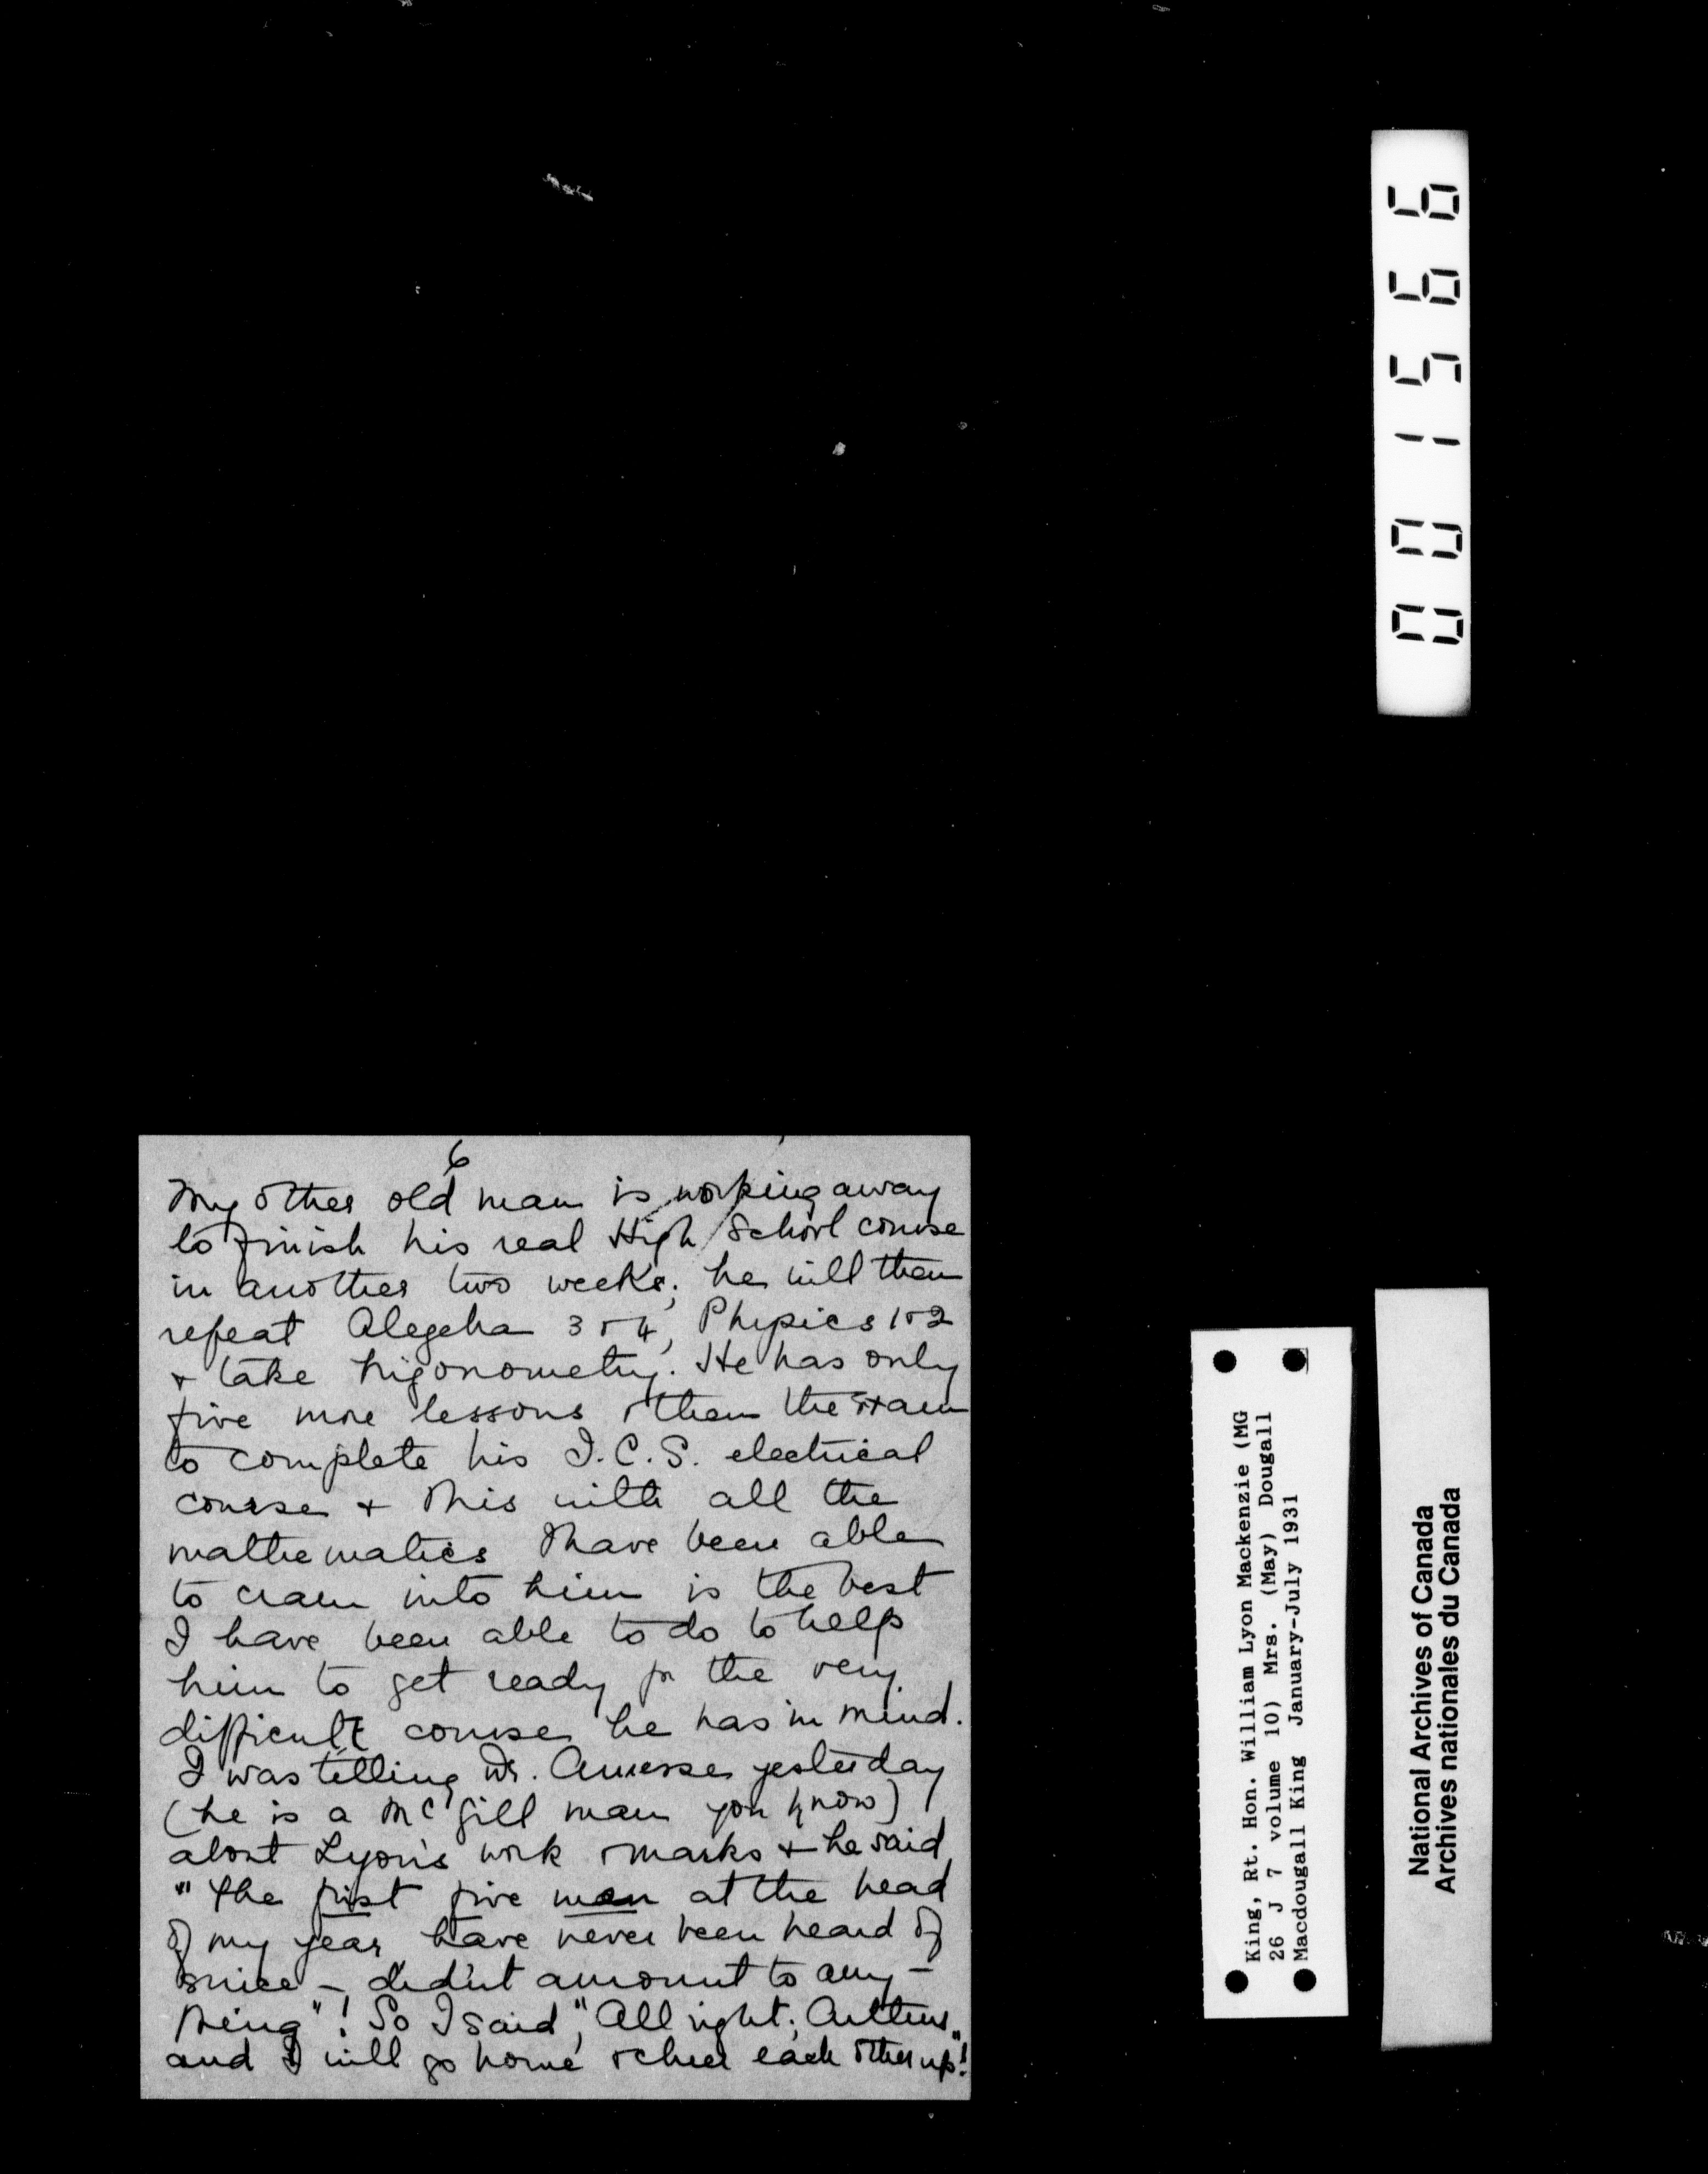 6
My other old man is working away
to finish his real High School course
in another two weeks; he will then
repeat Alegebra 3 + 4, Physics 1 + 2
+ take trigonometry. He has only
five more lessons + then the exam
to complete his I.C.S. electrical
course + this with all the
mathematics I have been able
to cram into him is the best
I have been able to do to help
him to get ready for the very
difficult course he has in mind.
I was telling Dr. Amesse yesterday
(he is a McGill man you know)
about Lyon's work + marks + he said
"The first five men at the head
of my year have never been heard of
since - didn't amount to any-
thing"! So I said, "All right; Arthur
and I will go home + cheer each other up"!
001566
King, Rt. Hon. William Lyon Mackenzie (MG
26 J 7 volume 10) Mrs. (May) Dougall
Macdougall King January-July 1931
National Archives of Canada
Archives nationales du Canada